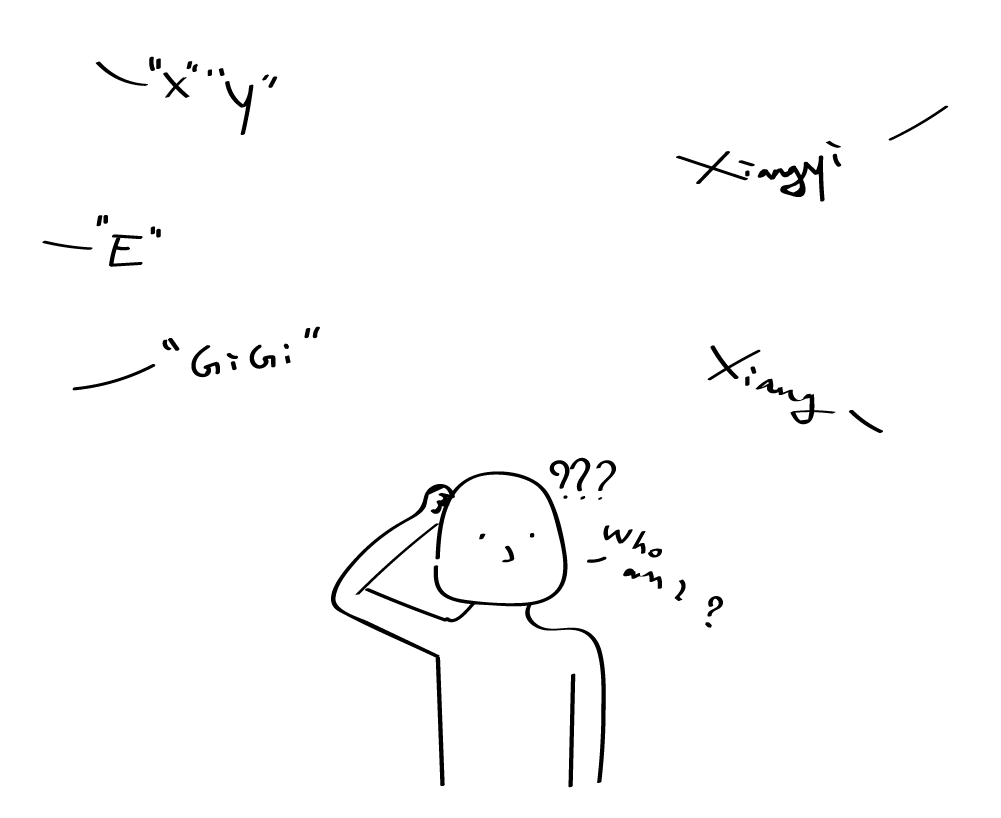 "X" "Y"
Xiangyi
"E"
"GiGi"
Xiang
???
Who
am I
?